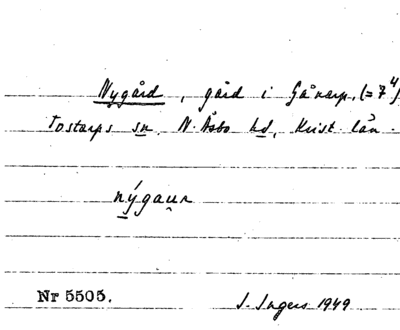 Nygård, gård i Gånarp, (= 7⁴)
Tostarps sn. N. Åsbo hd, Krist. län.
nýgaun
Nr 5505. J. Ingers 1949